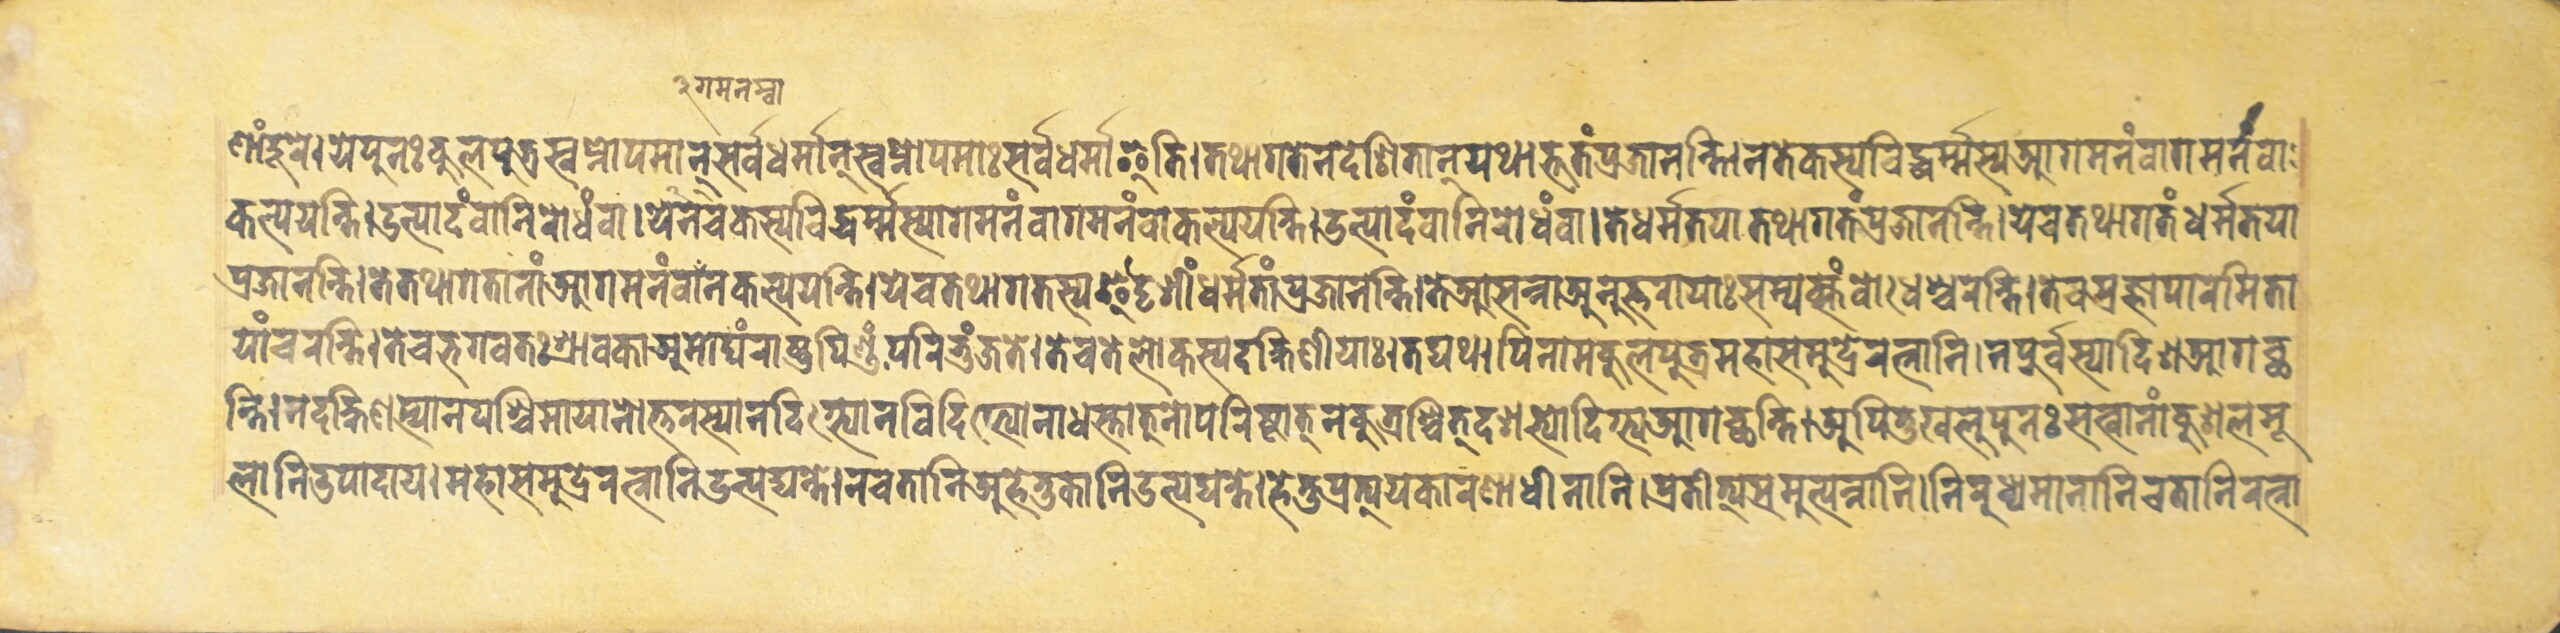 गमनम्वा
णां दूरे। ये पुनः कुलपुत्र स्वप्नोपमान् सर्वधर्मान् स्वप्नोपमाः सर्वधर्मा इति। तथागतेन देशितान् यथाभूतं प्रजानन्ति। न ते कस्यचिद्धर्म्मस्य आगमनं वा गमनं वा
कल्पयन्ति। उत्पादं वा निरोधं वा। ये न च कस्यचिद्धर्म्मस्यागमनं वा गमनं वा कल्पयन्ति। उत्पादं वा निरोधं वा। ते धर्मतया तथागतं प्रजानन्ति। ये च तथागतं धर्मतया
प्रजानन्ति। ते तथागतानां आगमनं वा न कल्पयन्ति। ये च तथागतस्य ईदृशीं धर्मतां प्रजानन्ति। ते आसन्ना अनुत्तरायाः सम्यक्संबोधेश्चरन्ति। ते च प्रज्ञापारमिता
यां चरन्ति। ते च भगवतः श्रावका अमोघं राष्ट्रपिण्डं परिभुंजते। ते च ते लोकस्य दक्षिणीयाः। तद्यथापि नाम कुलपुत्र महासमुद्रे रत्नानि। न पूर्वस्या दिश आगच्छ
न्ति। न दक्षिणस्या न पश्चिमाया नोत्तरस्या न दिग्भ्यो न विदिग्भ्यो नाधस्तात् नोपरिष्टात् न कुतश्चित् दशभ्यो दिग्भ्य आगच्छन्ति। अपि तु खलु पुनः सत्त्वानां कुशलमू
लानि उपादाय। महासमुद्रे रत्नानि उत्पद्यन्ते। न च तानि अहेतुकानि उत्पद्यन्ते। हेतुप्रत्ययकारणाधीनानि। प्रतीत्यसमुत्पन्नानि। निरुध्यमानानि च तानि रत्ना